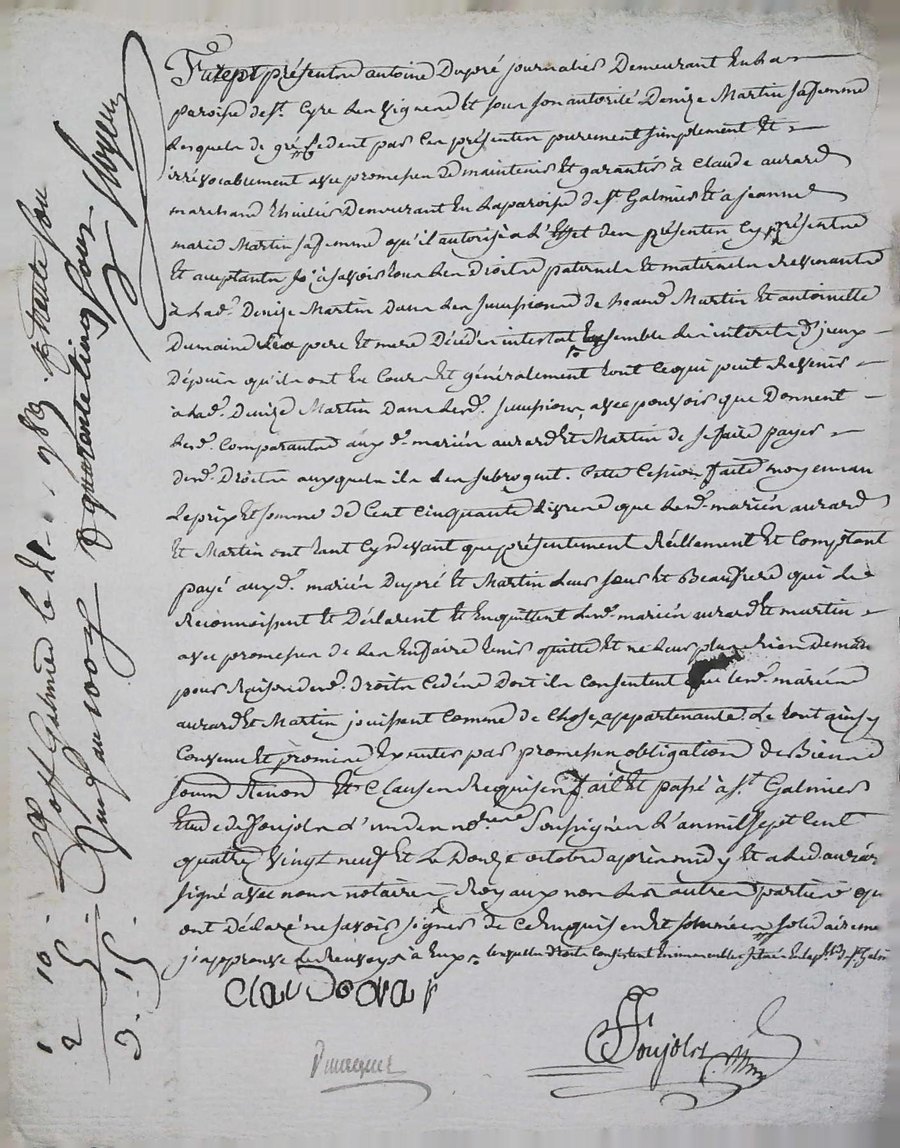 Furent présentre antoine Dupré journalier Demeurant En La
paroise de St. Cyre Les Vignend Et sous son autorité Denize Martin sa femme
Lesquels de gré Cedent par Ces présenten purement simplement Et
irrévocablement avec promesen De maintenir Et garantir à Claude aurard
marchand Demeurant En La paroise de St Galmier Et a jeanne
marie Martin sa femme qu'il autorise a L'Effet den présenten Cy présentre
Et aceptantn savoir tous Les Droitn paternels Et maternels Revenantn
à Lad. Denize Martin Dans Les successions de Martin Et antoinette
Dumaine Ses pere Et mere Décédén intestat Ensemble Les interetn D'jeux
Depuis qu'ils ont Eu Cours Et généralement tout Ce qui peut Revenir
a Lad. Denize Martin Dans Lesd. succession, avec pouvoir que Donnent
Lesd. Comparantn aux d. marién aurard Et Martin de se faire payer
desd. Droitn auxquels ils Les subrogent. Cette Cession faite moyennan
Le prix Et somme de Cent Cinquante Livrend que Lesd. marién aurard
Et Martin ont tant Cy devant que présentement Réellement Et Comptant
payé aux d. marién Dupré Et Martin Leur sœur Et Beaufrere qui Le
Reconnoissent Le Déclarent Et En quittent Lesd. marién aurard Et martin
avec promesen de Les En faire tenir quitte Et ne Leur plus Rien Deman
pour Raison desd. Droitn Cédén Dont ils Consentent que Lesd. marién
aurard Et Martin jouissent Comme de Chose appartenante. Le tout ainsy
Convenu Et promin Executer par promesen obligation de Bienn
soumn Renond Et Clausen Requisen fait Et pasé à St. Galmier
Etude de foujoln l'un den nored Soussignén L'an mil sept Cent
quatre Vingt neuf Et Le Douze octobre aprèn midy Et a Led aurar
signé avec noun notairen Royaux non Les autren partien qu
ont Déclaré ne savoir signer de Ce Enquisen Et
j'approuve Le Renvoy
Claudoorar
foujoln
Cllé à St Galmier le 21 8bre 1789. R trente sou
Insinué au 100e D quarantecinq sous.
1 10
2 5
3 . 15